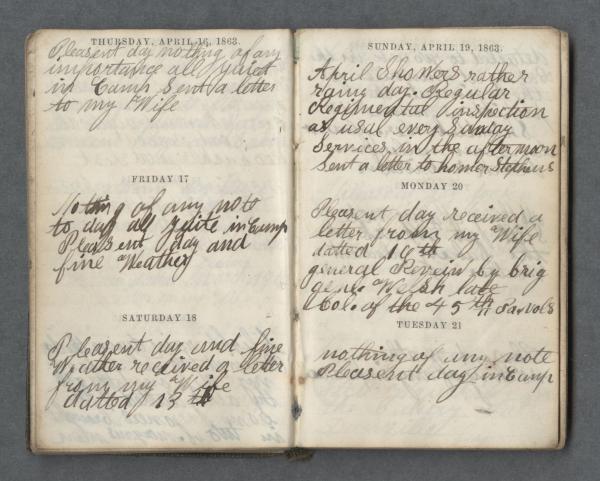 THURSDAY, APRIL 16, 1863.
Pleasent day nothing of any
importance all quiet
in Camp Sent a letter
to my Wife
FRIDAY 17
Nothing of any note
to day all quite in Camp
Pleasent day and
fine Weather
SATURDAY 18
Pleasent day and fine
Weather received a letter
from my Wife
datted 13th
SUNDAY, APRIL 19, 1863.
April Showers rather
rainy day. Regular
Regimental inspection
as usual every Sunday
Services in the afternoon
Sent a letter to homer Stephens
MONDAY 20
Pleasent day received a
letter from my Wife
datted 16th
general Reveiw by brig
gen. Welsh late
Col. of the 45th Pa Vols
TUESDAY 21
nothing of any note
Pleasent day in Camp